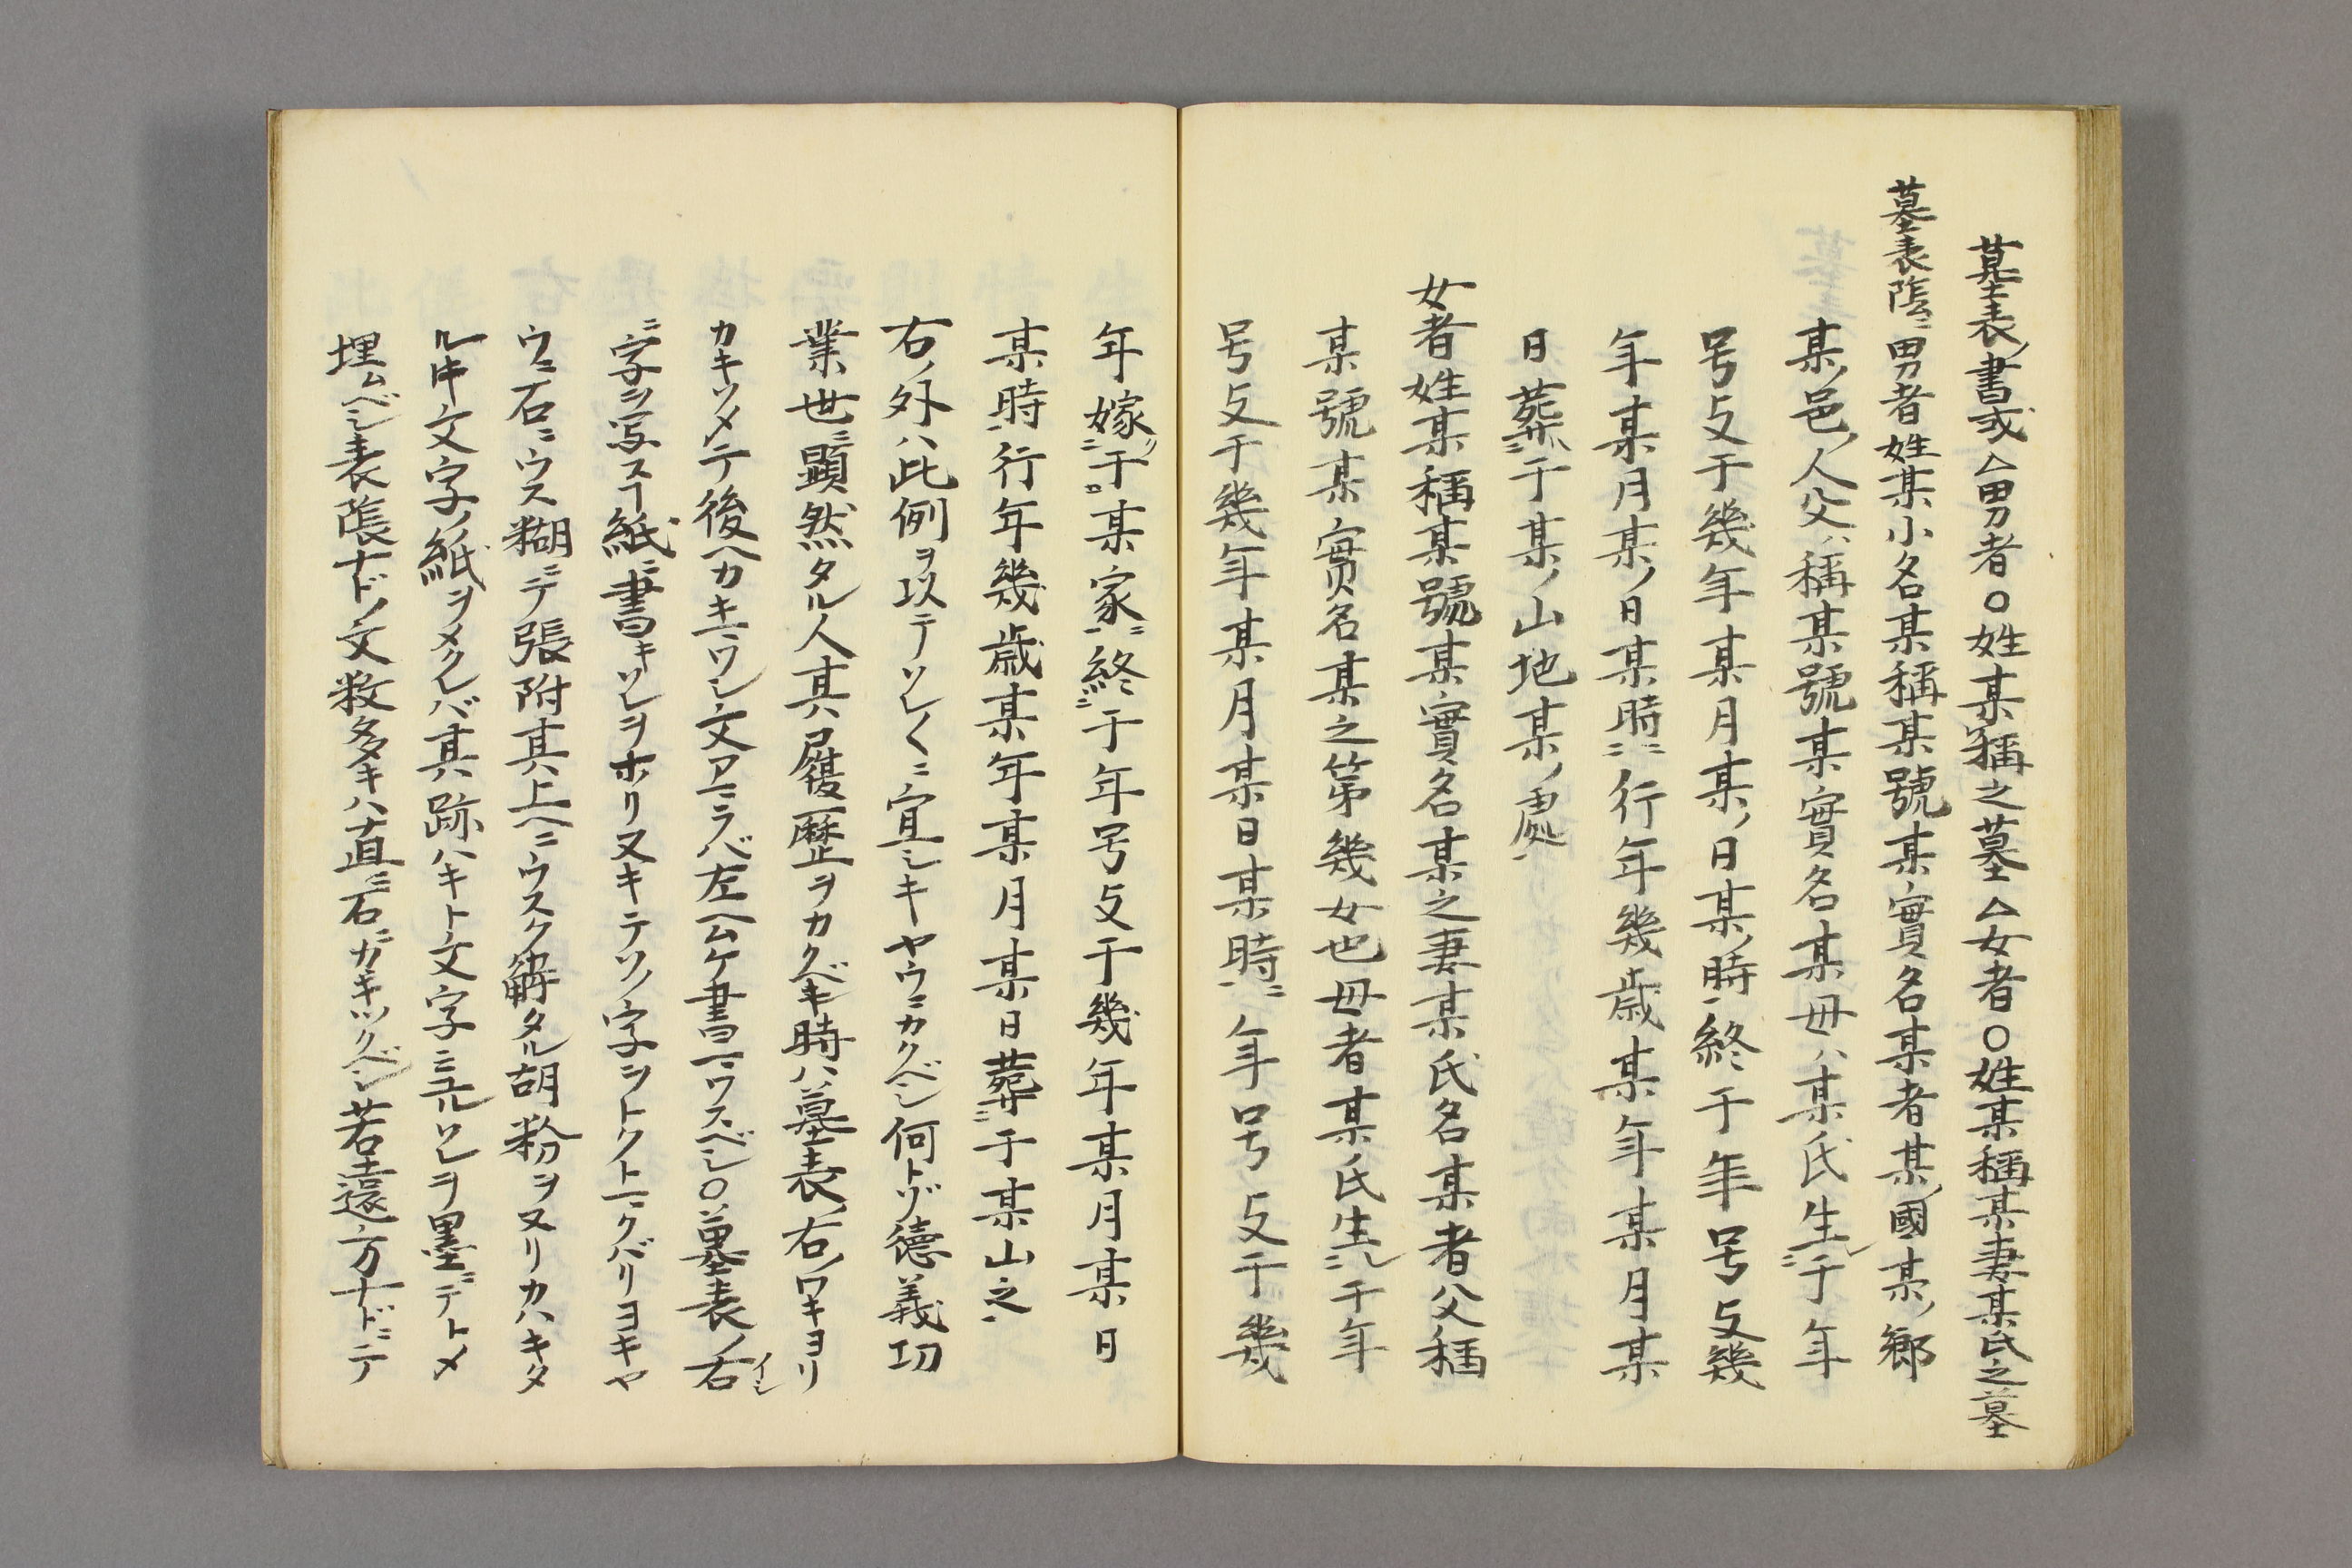 墓表ノ書或△男者○姓某稱之墓△女者○姓某稱某妻某氏之墓
墓表陰ニ男者姓某小名某稱某號某實名某者某ノ國某ノ鄉
某ノ邑ノ人父ハ稱某號某實名某母ハ某氏生ニ于年
号支干幾年某月某ノ日某ノ時ニ終于年号支幾
年某月某ノ日某時ニ行年幾歳某年某月某
日葬ニ于某ノ山地某ノ處ニ
女者姓某稱某號某實名某之妻某氏名某者父稱
某號某實名某之第幾女也母者某氏生ルニ于年
号支干幾年某月某日某時ニ年号支干幾
年嫁ニ于某家ニ終ニ于年号支干幾年某月某日
某時ニ行年幾歳某年某月某日葬ニ于某山之
右ノ外ハ此例ヲ以テソレ〱ニ宜シキヤウニカクベシ何トゾ徳義功
業世ニ顕然タル人其ハ履歴ヲカクベキ時ハ墓表ノ右ノワキヨリ
カキソメテ後ヘカキマワシ文アマラバ左ヘムケ書マワスベシ○墓表ノ石イシ
ニ字ヲ写スヿ紙ニ書キソレヲホリヌキテソノ字ヲトクトクバリヨキヤ
ウニ石ニウス糊ニテ張附其上ヘニウスク解タル胡粉ヲヌリカハキタ
ル時文字ノ紙ヲメクレバ其跡ハキト文字ニ元ルソレヲ墨デトメ
埋ムベシ表陰ナドノ文数多キハ直ニ石ニカキツクベシ若遠方ナドニテ